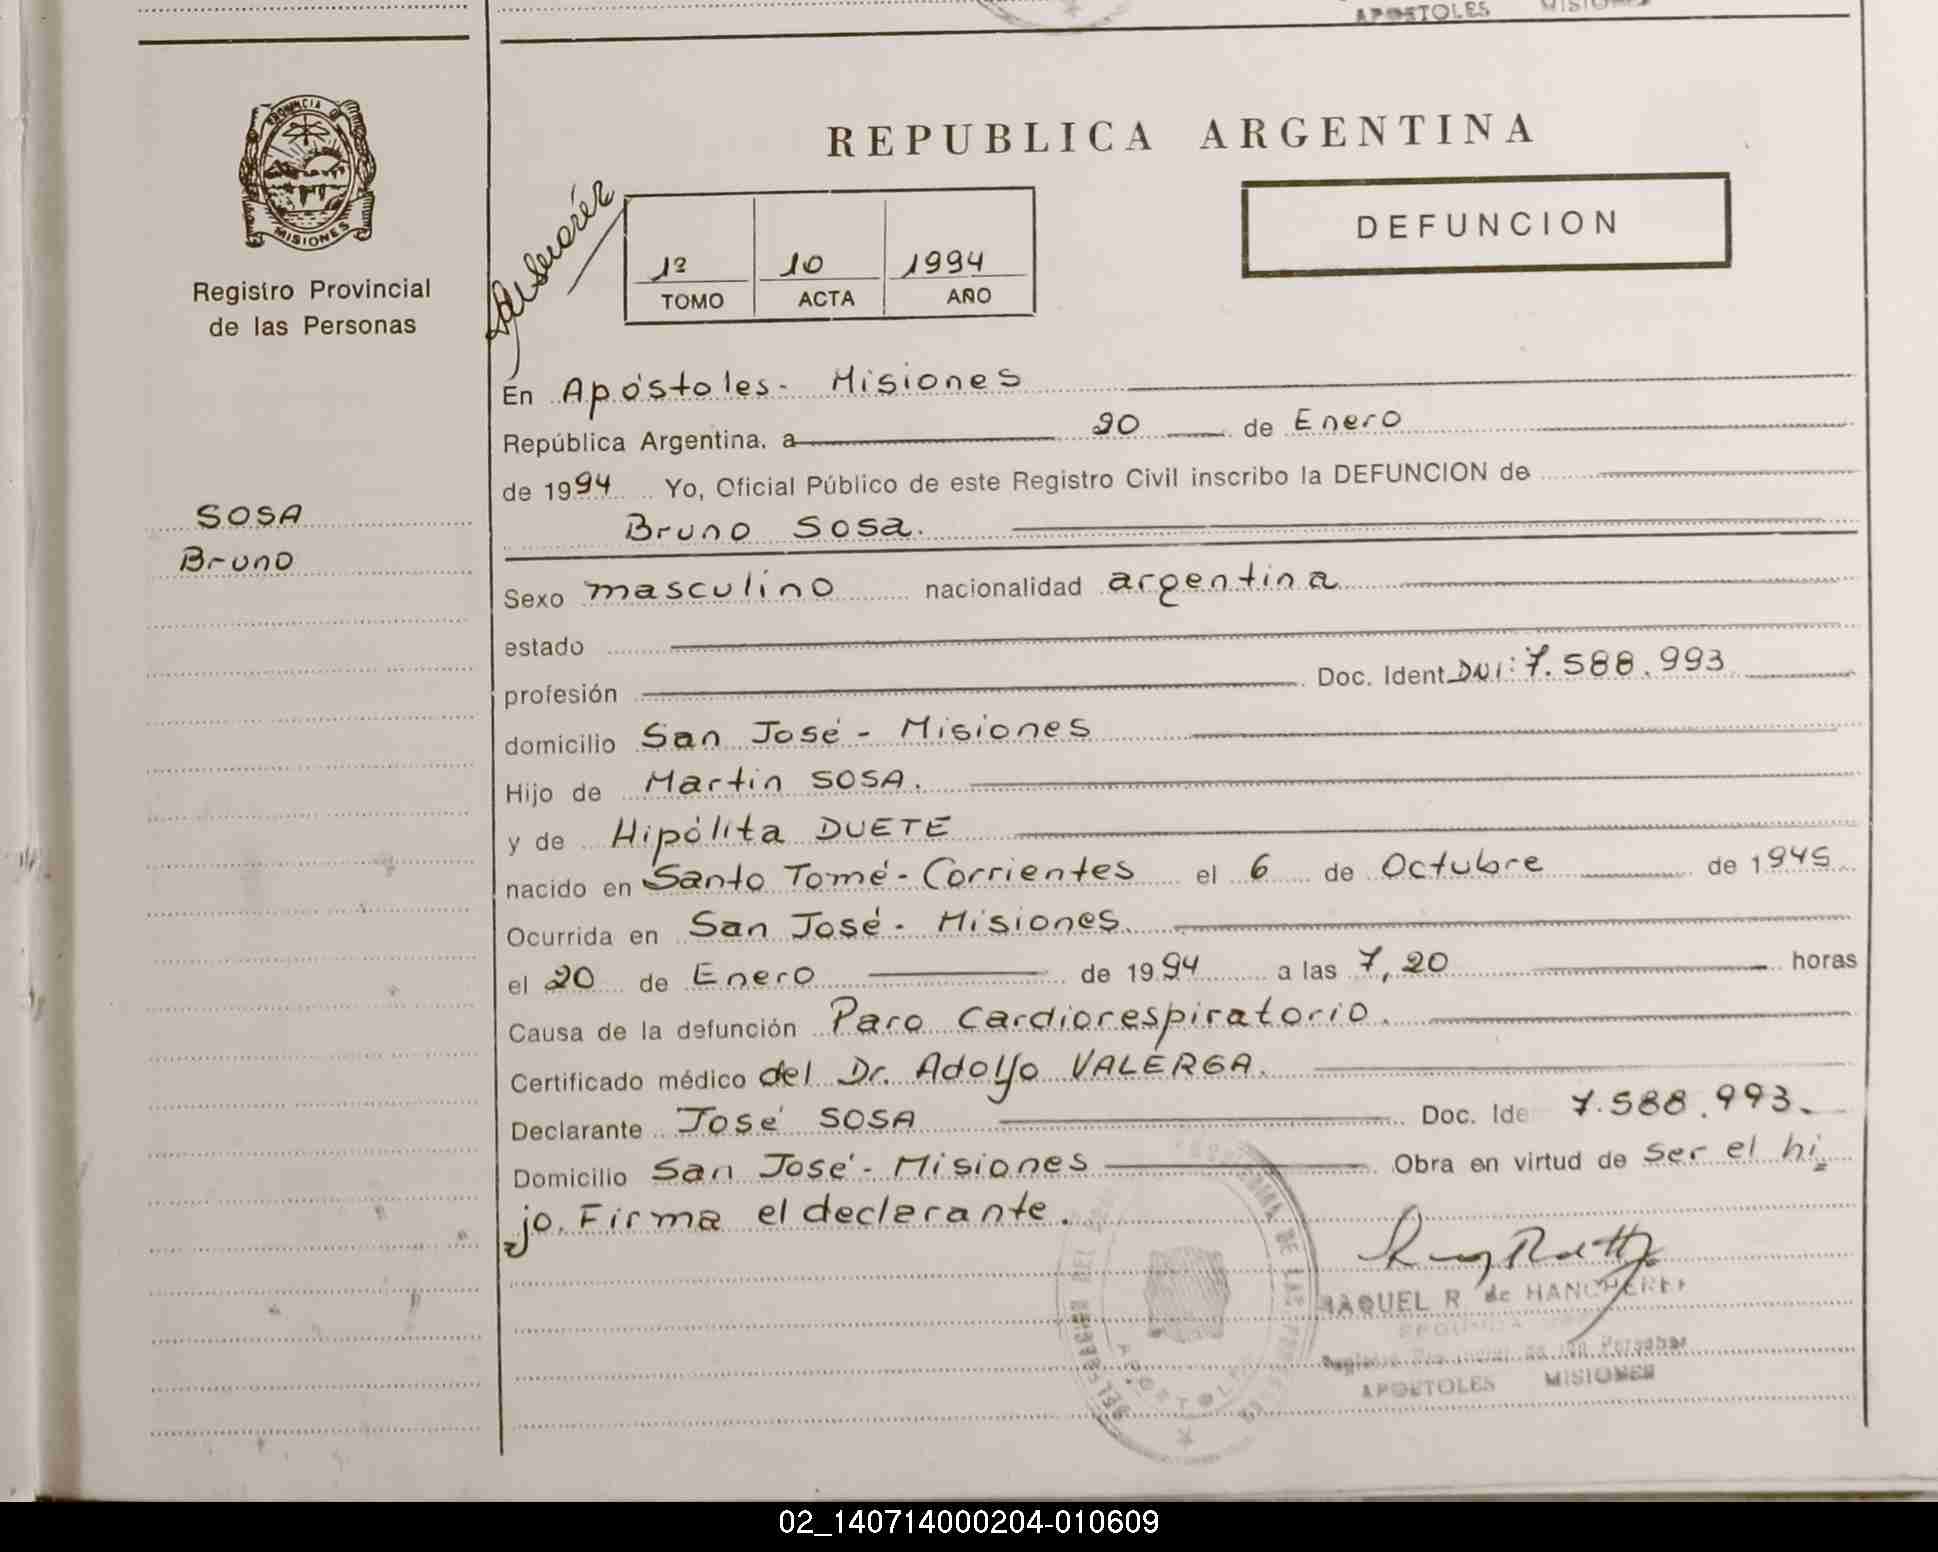 APOSTOLES MISIONES
PROVINCIA DE
MISIONES
Registro Provincial
de las Personas
SOSA
Bruno
REPUBLICA ARGENTINA
DEFUNCION
1º 10 1994
TOMO ACTA AÑO
En Apóstoles - Misiones
República Argentina, a 20 de Enero
de 1994 Yo, Oficial Público de este Registro Civil inscribo la DEFUNCION de
Bruno Sosa.
Sexo masculino nacionalidad argentina
estado
profesión Doc. Ident DNI: 7.588.993
domicilio San José - Misiones
Hijo de Martin SOSA.
y de Hipólita DUETE
nacido en Santo Tomé - Corrientes el 6 de Octubre de 1945
Ocurrida en San José - Misiones.
el 20 de Enero de 1994 a las 7,20 horas
Causa de la defunción Paro Cardiorespiratorio.
Certificado médico del Dr. Adolfo VALERGA.
Declarante José SOSA Doc. Ide 7.588.993.
Domicilio San José - Misiones Obra en virtud de ser el hi
jo. Firma el declarante.
RAQUEL R de
APOSTOLES MISIONES
APOSTOLES
02_140714000204-010609